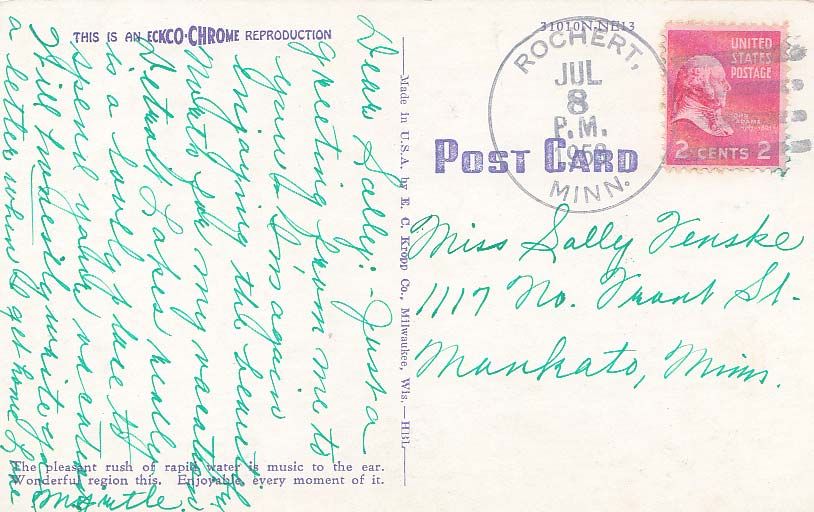 THIS IS AN ECKCO-CHROME REPRODUCTION
Dear Sally:- Just a
greeting from me to
you. I'm again
enjoying the beautiful
North for my vacation.
Detroit Lakes really
is a lovely place to
spend your vacation.
Will write you
a letter when I get home. Love
Myrtle.
The pleasant rush of rapid water is music to the ear.
Wonderful region this. Enjoyable, every moment of it.
Made in U.S.A. by E. C. Kropp Co., Milwaukee, Wis.
31010N-NE13
POST CARD
ROCHERT,
JUL
8
P.M.
MINN.
UNITED
STATES
POSTAGE
JOHN
ADAMS
2 CENTS 2
Miss Sally Venske
1117 No. Front St.
Mankato, Minn.